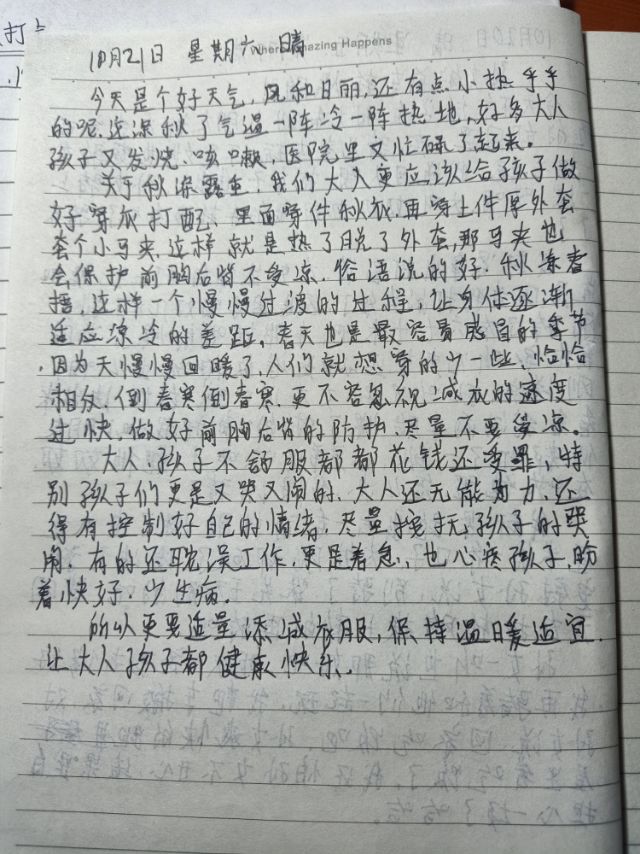 10月21日 星期六 晴
Where Amazing Happens
今天是个好天气,风和日丽,还有点小热乎乎
的呢,这深秋了气温一阵冷一阵热地,好多大人
孩子又发烧、咳嗽,医院里又忙碌了起来。
关于秋深露重,我们大人更应该给孩子做
好穿衣打配,里面穿件秋衣,再穿上件厚外套
套个小马夹,这样就是热了脱了外套,那马夹也
会保护前胸后背不受凉,俗语说的好,秋冻春
捂,这样一个慢慢过渡的过程,让身体逐渐
适应凉冷的差距,春天也是最容易感冒的季节
,因为天慢慢回暖了,人们就想穿的少一些,恰恰
相反,倒春寒倒春寒,更不容忽视,减衣的速度
过快,做好前胸后背的防护,尽量不要受凉。
大人、孩子不舒服都都花钱还受罪,特
别孩子们更是又哭又闹的,大人还无能为力,还
得有控制好自己的情绪,尽量安抚孩子的哭
闹,有的还耽误工作,更是着急,也心疼孩子,盼
着快好,少生病。
所以更要适量添减衣服,保持温暖适宜
让大人孩子都健康快乐.